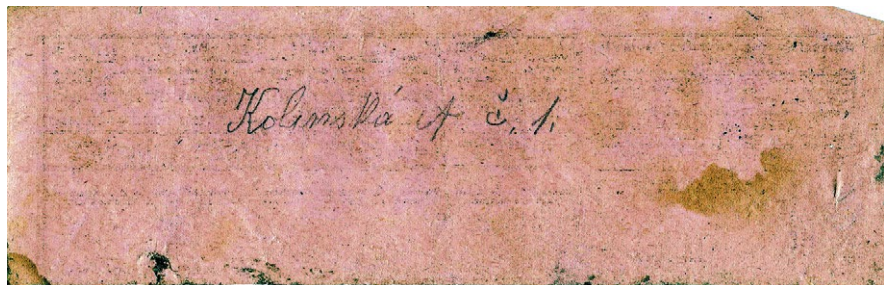 Kolínská A č. 1.